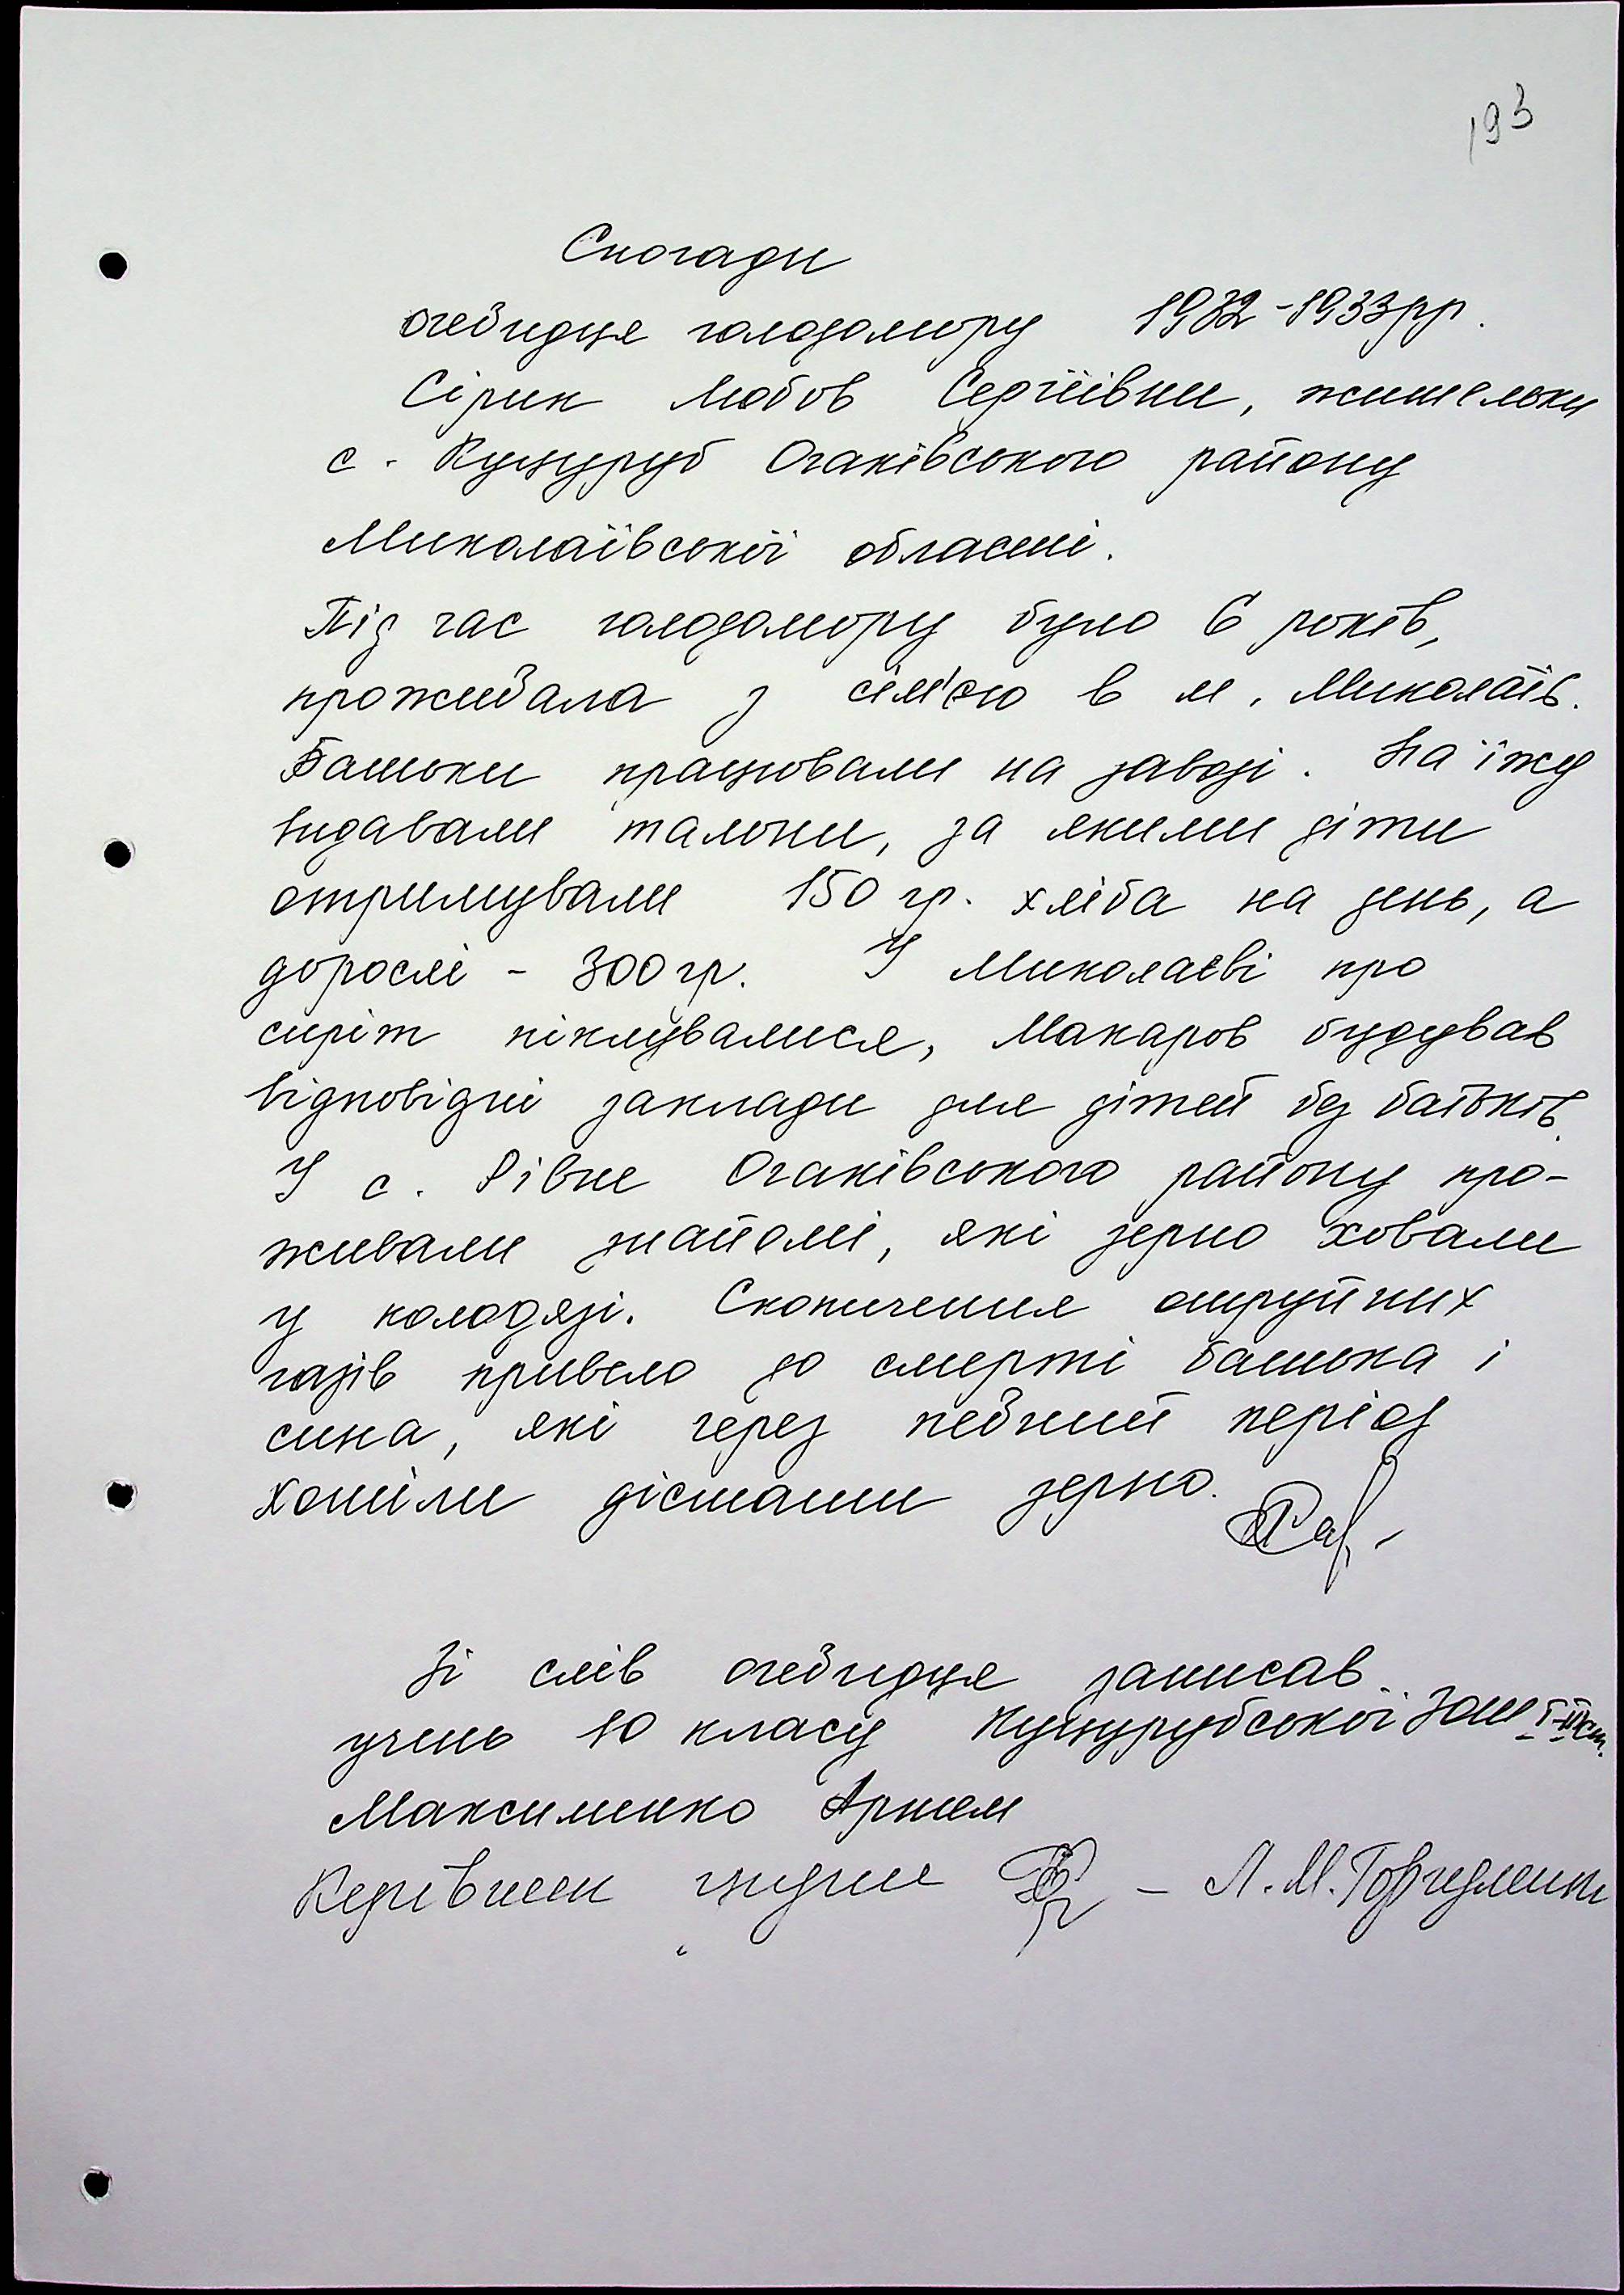 193
Спогади
очевидця голодомору 1932-1933рр.
Сірик Любов Сергіївни, жительки
с. Куцуруб Очаківського району
Миколаївської області.
Під час голодомору було 6 років,
проживала з сім'єю в м. Миколаїв.
Батьки працювали на заводі. На їжу
видавали талони, за якими діти
отримували 150 гр. хліба на день, а
дорослі - 300 гр. У Миколаєві про
сиріт піклувалися, Макаров будував
відповідні заклади для дітей без батьків.
У с. Рівне Очаківського району про-
живали знайомі, які зерно ховали
у колодязі. Скопичення отруйних
газів привело до смерті батька і
сина, які через певний період
хотіли дістати зерно.
Зі слів очевидця записав
учень 10 класу Куцурубської ЗОШ І-ІІІ ст.
Максименко Артем
Керівник групи - Л.М.